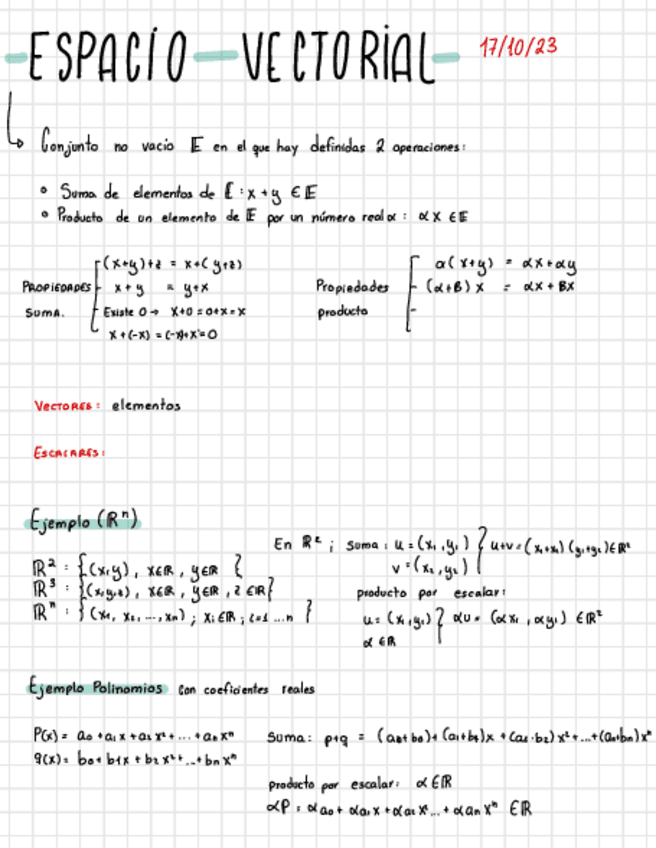 ESPACIO VECTORIAL 17/10/23
Conjunto no vacio E en el que hay definidas 2 operaciones:
• Suma de elementos de E : x + y ∈ E
• Producto de un elemento de E por un número real α : αx ∈ E
PROPIEDADES SUMA.
(x+y)+z = x+(y+z)
x+y = y+x
Existe 0 → x+0 = 0+x = x
x+(-x) = (-x)+x = 0
Propiedades producto
α(x+y) = αx + αy
(α+β)x = αx + βx
-
VECTORES: elementos
ESCALARES:
Ejemplo (ℝⁿ)
ℝ² : {(x,y), x∈ℝ, y∈ℝ }
ℝ³ : {(x,y,z), x∈ℝ, y∈ℝ, z∈ℝ}
ℝⁿ : {(x₁, x₂, ..., xₙ) ; xᵢ∈ℝ ; i=1 ... n }
En ℝ² ; suma : u = (x₁, y₁) } u+v = (x₁+x₂) (y₁+y₂) ∈ ℝ²
v = (x₂, y₂)
producto por escalar:
u = (x₁, y₁) } αu = (αx₁, αy₁) ∈ ℝ²
α ∈ ℝ
Ejemplo Polinomios con coeficientes reales
P(x) = a₀ + a₁x + a₂x² + ... + aₙxⁿ
q(x) = b₀ + b₁x + b₂x² + ... + bₙxⁿ
Suma: p+q = (a₀+b₀) + (a₁+b₁)x + (a₂·b₂)x² + ... + (aₙ+bₙ)xⁿ
producto por escalar: α ∈ ℝ
αP = αa₀ + αa₁x + αa₂x² ... + αaₙxⁿ ∈ ℝ